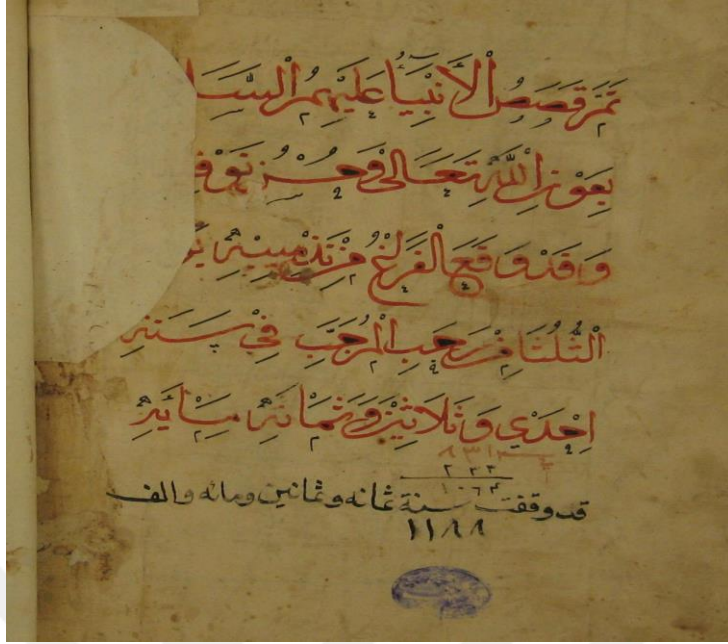 تمّت قصص الأنبياء عليهم السـ
بعون الله تعالى وحسن توفـ
وقد وقع الفراغ من تذهيبه يو
الثلثا من رجب المرجّب في سنة
احدي وثلاثين وثمانمائة
٨٣١
٢٣٣
١٠٦٤
قد وقفت سنة ثمانه وثمانين ومائه والف
١١٨٨